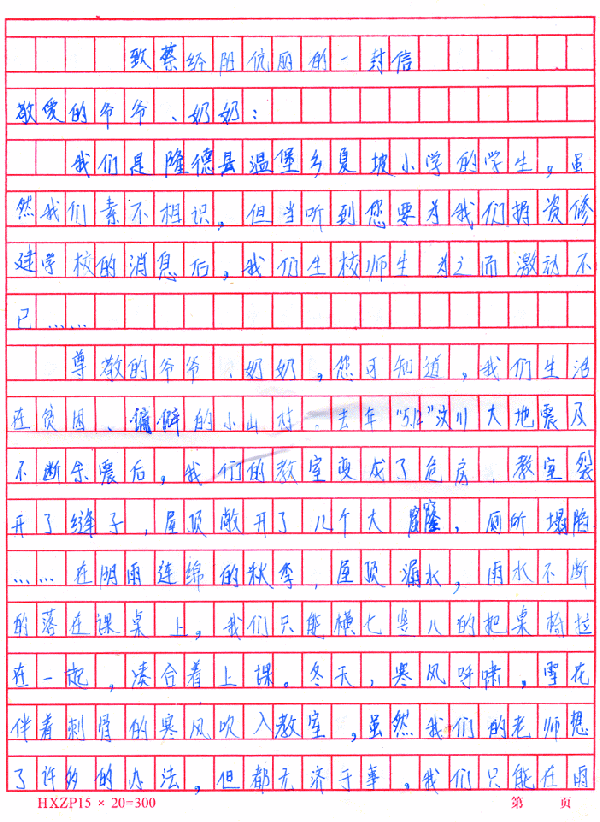 致蔡经阳伉俪的一封信
敬爱的爷爷、奶奶:
我们是隆德县温堡乡夏坡小学的学生,虽
然我们素不相识,但当听到您要为我们捐资修
建学校的消息后,我们生校师生为之而激动不
已……
尊敬的爷爷、奶奶,您可知道,我们生活
在贫困、偏僻的小山村。去年"512"汶川大地震及
不断余震后,我们的教室变成了危房,教室裂
开了缝子,屋顶敞开了几个大窟窿,厕所塌陷
……在阴雨连绵的秋季,屋顶漏水,雨水不断
的落在课桌上,我们只能横七竖八的把桌椅拉
在一起,凑合着上课。冬天,寒风呼啸,雪花
伴着刺骨的寒风吹入教室,虽然我们的老师想
了许多的办法,但都无济于事,我们只能在雨
HXZP15 × 20=300 第 页